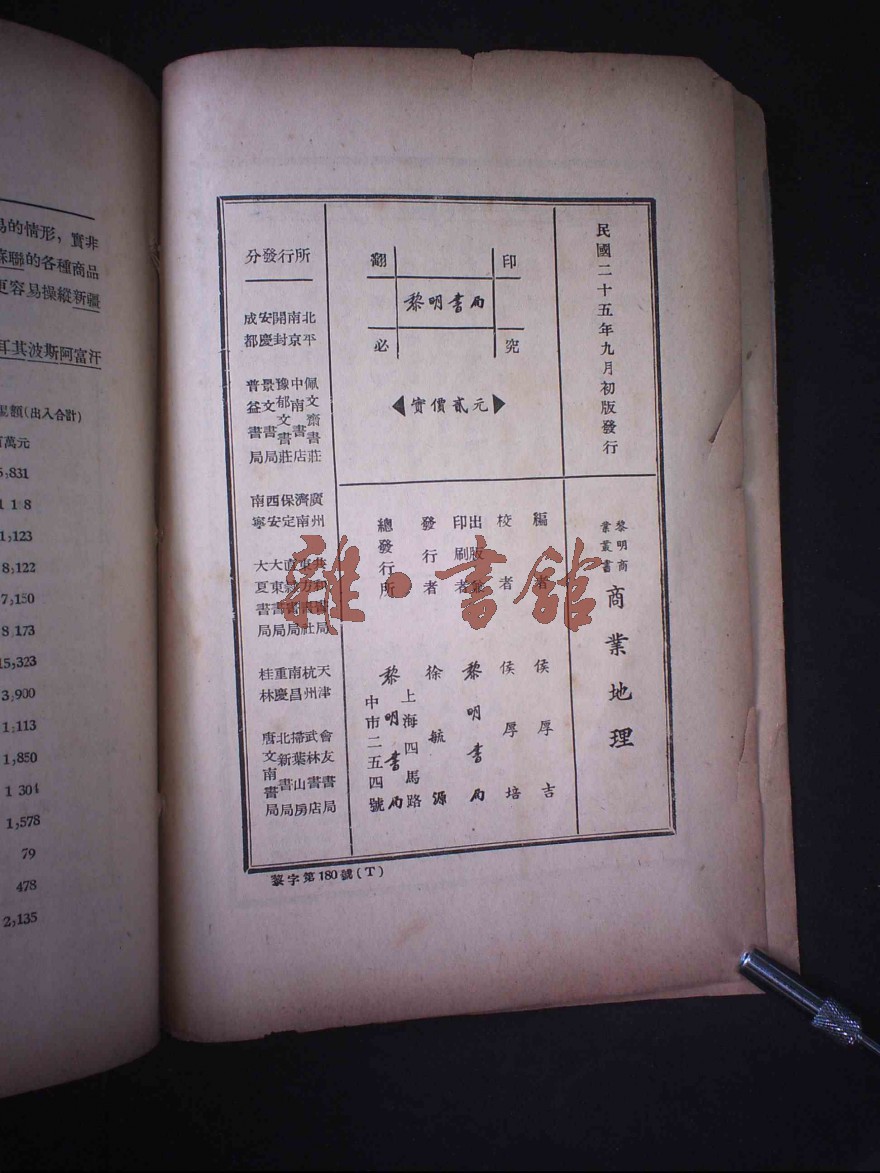 民國二十五年九月初版發行
黎明商業叢書
商業地理
印
翻
究
必
黎明書局
實價貳元
編者 侯厚吉
校者 侯厚培
出版兼印刷者 黎明書局
發行者 徐航源
總發行所 黎明書局
上海四馬路
中市二五四號
分發行所
北平 佩文齋書莊
南京 中南書店
開封 豫郁文書莊
安慶 景文書局
成都 普益書局
廣州 共和書局
濟南 東方書社
保定 直隸書局
西安 大東書局
南寧 大夏書局
天津 會友書局
杭州 武林書店
南昌 掃葉山房
重慶 北新書局
桂林 唐文南書局
黎字第180號(T)
易的情形，實非
蘇聯的各種商品
更容易操縱新疆
耳其波斯阿富汗
額(出入合計)
百萬元
5,831
118
1,123
8,122
7,150
8,173
15,323
3,900
1,113
1,850
1 304
1,578
79
478
2,135
雜·書館